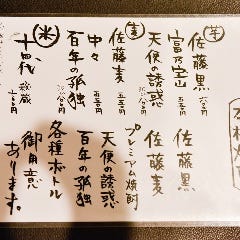 芋
佐藤黒
富乃宝山 五五〇円
天使の誘惑
麦
佐藤麦 五五〇円
中々 五五〇円
百年の孤独
米
十四代 秘蔵
プレミアム焼酎
佐藤黒
佐藤麦
天使の誘惑
百年の孤独
各種ボトル
御用意
あります。